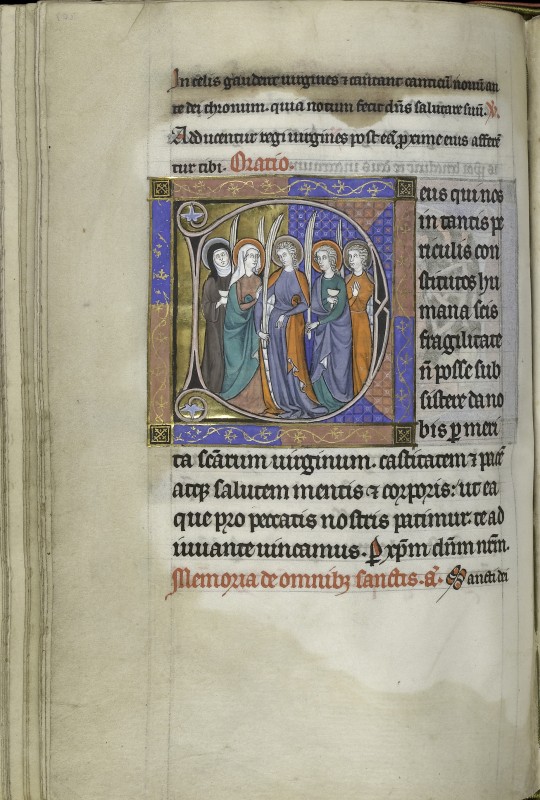 In celis gaudent uirgines ⁊ cantant canticū nouū an
te dei thronum. quia notum fecit dn̄s salutare suū. ℣.
Adducentur regi uirgines post eā ꝓxime eius afferē
tur tibi. Oratio.
eus qui nos
in tantis pe
riculis con
stitutos hu
mana scis
fragilitate
n̄ posse sub
sistere da no
bis ꝑ meri
ta sc̄arum uirginum. castitatem ⁊ pacē
atqꝫ salutem mentis ⁊ corporis: ut ea
que pro peccatis nostris patimur. te ad
iuuante uincamus. P xp̄m dn̄m nr̄m.
Memoria de omnibꝫ sanctis. a̅. Sancti dei